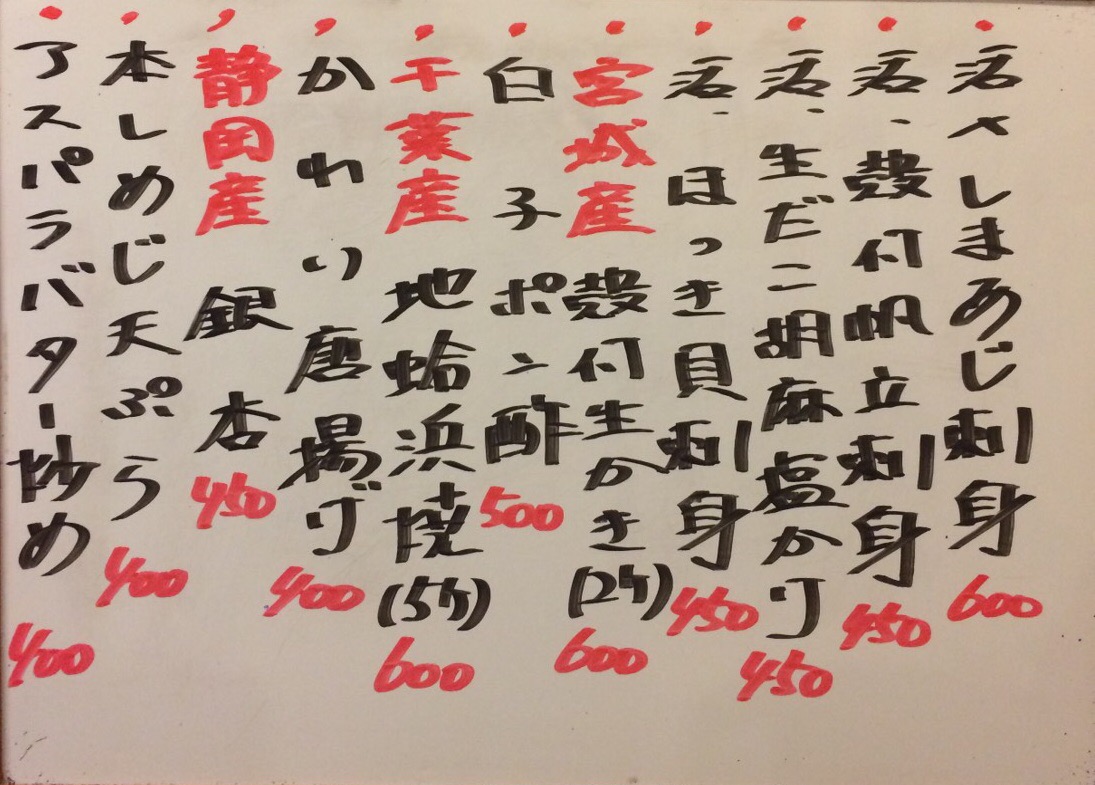 ・活〆しまあじ刺身 600
・活、殻付帆立刺身 450
・活、生だこ胡麻塩かけ 450
・活、ほっき貝刺身 450
・宮城産 殻付生かき(2ケ) 600
・白子ポン酢 500
・千葉産 地蛤浜焼(5ケ) 600
・かれい唐揚げ 400
・静岡産 銀杏 450
・本しめじ天ぷら 400
・アスパラバター炒め 400